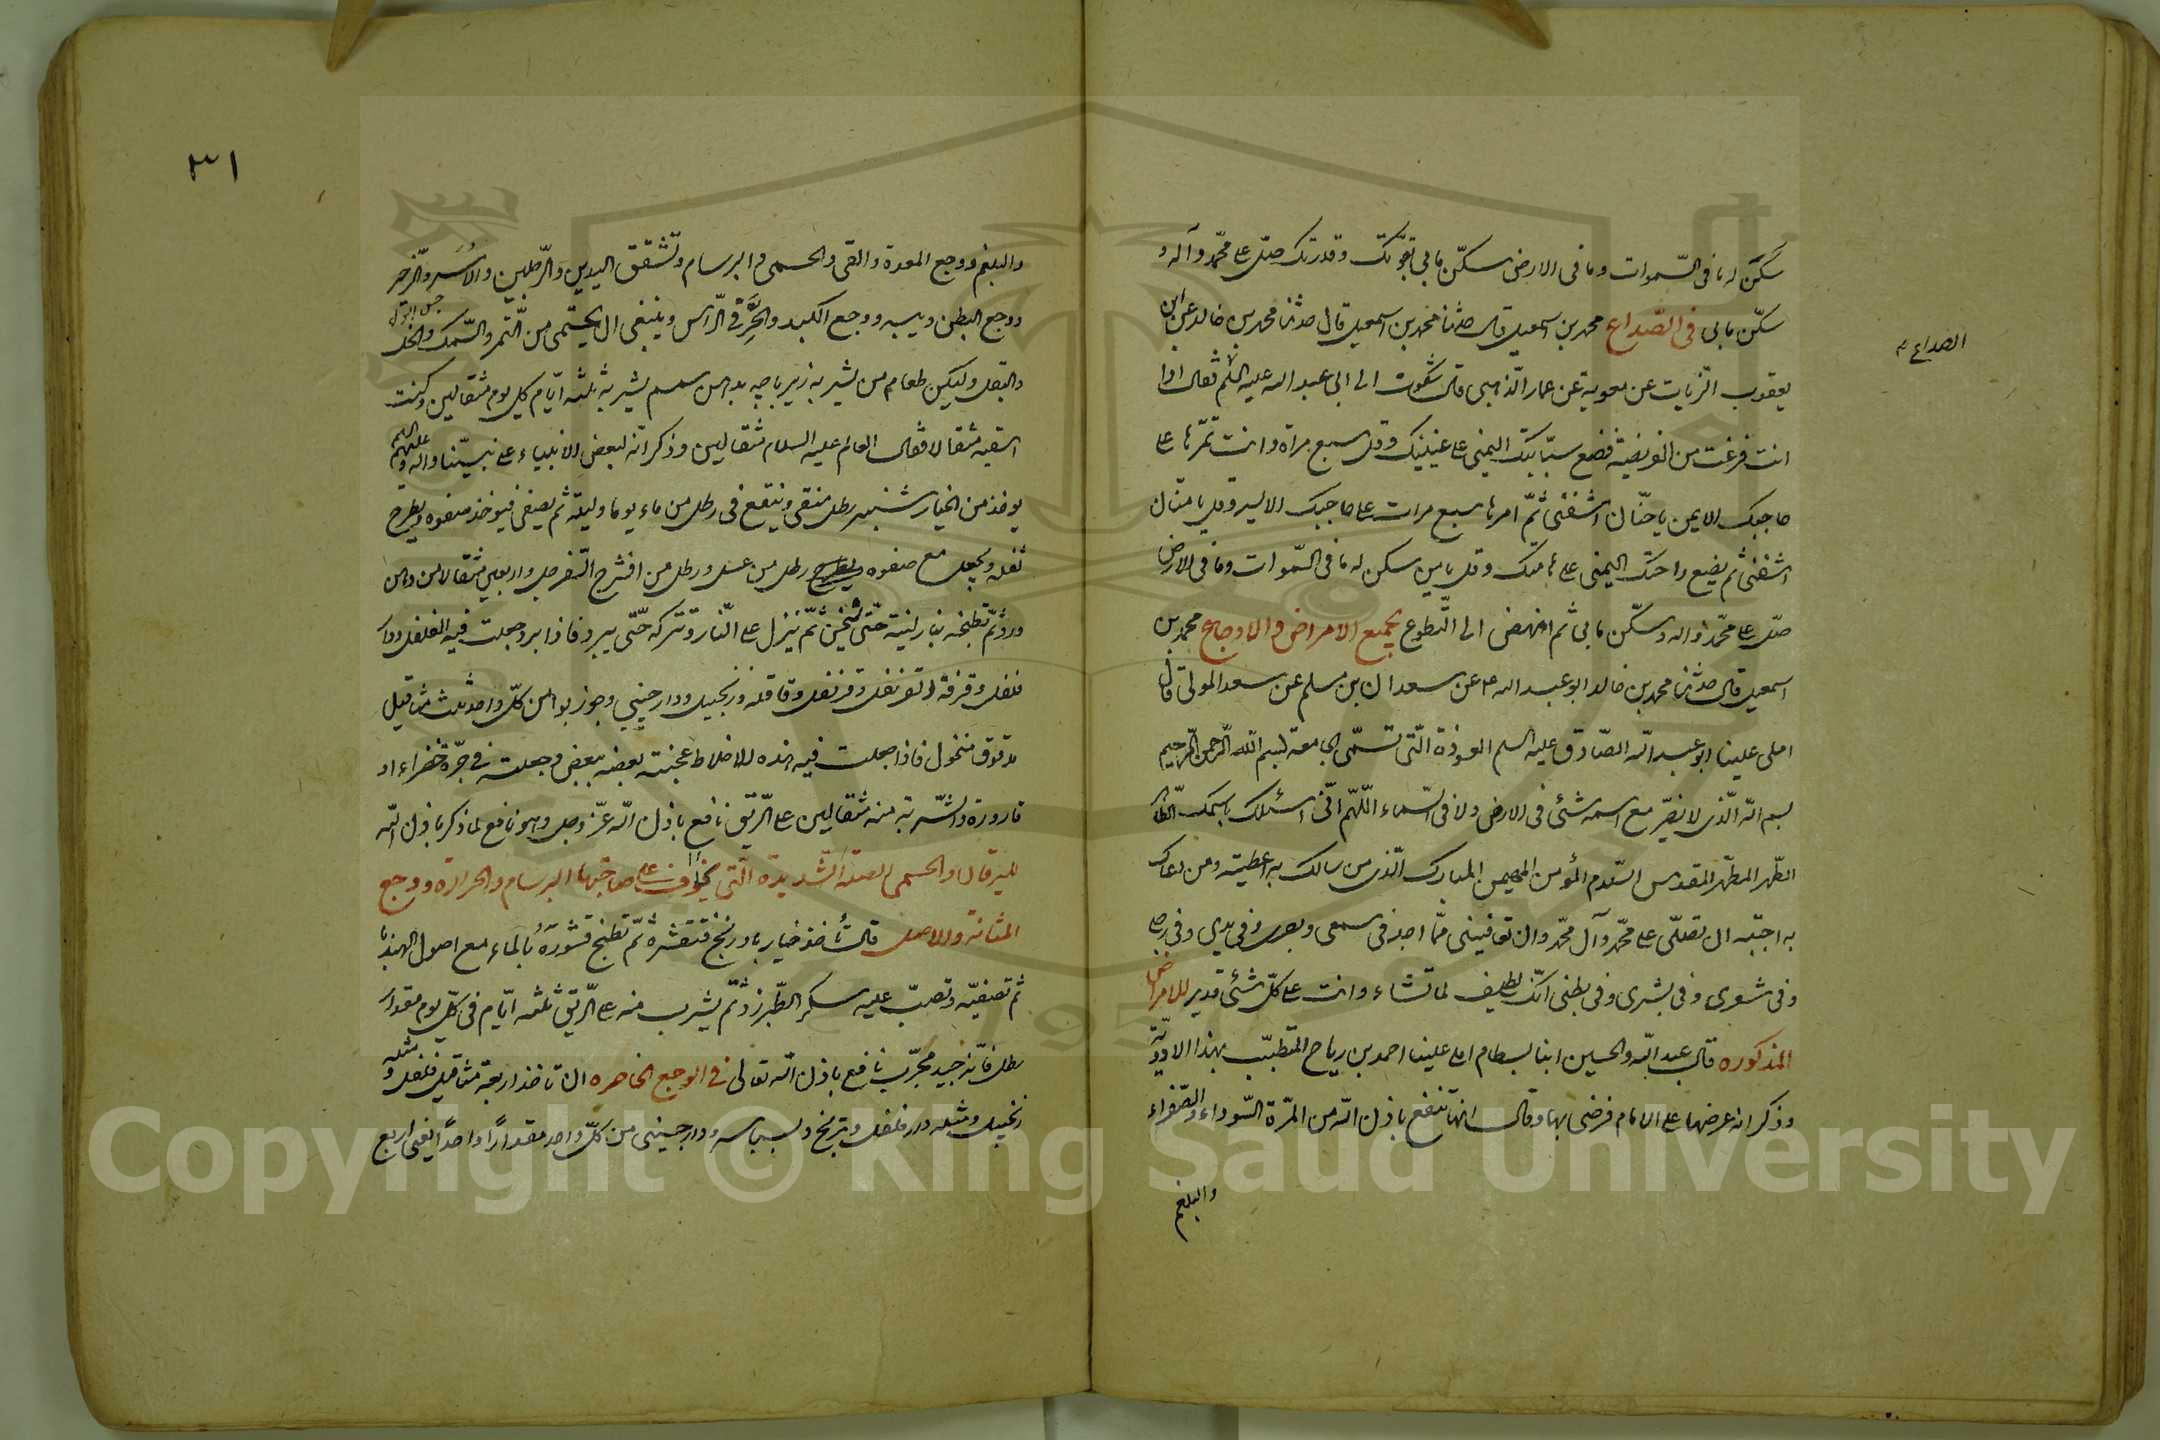 سكن له ما فى السّموات وما فى الارض سكّن ما بي بقوّتك وقدرتك صلّ على محمّد وآله و
سكّن ما بى فى الصّداع محمد بن اسمعيل قال حدثنا محمد بن اسمعيل قال حدثنا محمد بن خالد عن ابن
الصداع
يعقوب الزّيات عن معوية عن عمار الذهبى قال شكوت الى ابى عبد الله عليه السلم فقال اذا
انت فرغت من الفريضة فضع سبّابتك اليمنى على عينيك وقل سبع مراة وانت تمّرها على
حاجبك الايمن يا حنّان اشفنى ثمّ امرها سبع مرات على حاجبك الايسر وقل يا منّان
اشفنى ثم يضع راحتك اليمنى على هامتك وقل يا من سكن له ما فى السّموات وما فى الارض
صلّ على محمّد واله وسكّن ما بى ثم انهض الى التّطوع لجميع الامراض والاوجاع محمد بن
اسمعيل قال حدثنا محمد بن خالد ابو عبد الله عن سعدان بن مسلم عن سعد المولى قال
املى علينا ابو عبد الله الصّادق عليه السلم العوذة الّتى تسمّى الجامعة بسم الله الرّحمن الرّحيم
بسم الله الّذى لا يضرّ مع اسمه شئ فى الارض ولا فى السّماء اللّهمّ انّى اسئلك باسمك الطّاهر
الطّهر المطهّر المقدس السّلام المؤمن المهيمن المبارك الّذى من سالك به اعطيته ومن دعاك
به اجبته ان تصلّى على محمّد وآل محمّد وان تعافينى ممّا اجد فى سمعى وبصرى وفى يدي وفى رجلى
وفى شعرى وفى بشرى وفى بطنى انّك لطيف لما تشاء وانت على كلّ شئ قدير للامراض
المذكوره قال عبد الله والحسين ابنا بسطام املى علينا احمد بن رياح المتطبّب بهذا الادويّة
وذكر انه عرضها على الامام فرضى بها وقال انها تنفع باذن الله من المرّة السّوداء والصّفراء
والبلغم
٣١
والبلغم ووجع المعدة والقى والحمى والبرسام وتشقق اليدين والرّجلين والاسر والزّحير
ووجع البطن ويبسه ووجع الكبد والحرّ فى الرّاس وينبغى ان يحتمى من التّمر والسّمك والخل
والبقل وليكن طعام من يشربه زيرباجه بدهن سمسم يشربه ثلثه ايّام كلّ يوم مثقالين وكنت
اسقيه مثقالا فقال العالم عليه السلام مثقالين وذكر انّه لبعض الانبياء على نبيّنا واله وعليهم السلم
يوخذ من الخيار شنبر رطل منقى وينقع فى رطل من ماء يوما وليلة ثم يصفى فيوخذ صفوه ويطرح
ثفله ويجعل مع صفوه رطل من عسل ورطل من افشرج السّفرجل واربعين مثقالا من دهن
ورد ثمّ تطبخه بنار لينة حتّى يثخن ثمّ ينزل على النّار وتتركه حتّى يبرد فاذا برد جعلت فيه الفلفل ودار
فلفل وقرفة القرنفل وقرنفل وقاقله وزنجبيل ودارچينى وجوز بوا من كلّ واحد ثلث مثاقيل
مدقوق منخول فاذا جعلت فيه هذه الاخلاط عجنته بعضه ببعض وجعلته فى جرّة خضراء او
قارورة والشّربة منه مثقالين على الرّيق نافع باذن الله عزّ وجل وهو نافع لما ذكر باذن الله
لليرقان والحمى الصلبة الشّديدة الّتى يخاف على صاحبها البرسام والحرارة ووجع
المثانة والاحليل قال تأخذ خيار بادرنج فتقشره ثمّ تطبخ قشوره بالماء مع اصول الهندبا
ثم تصفيّه وتصبّ عليه سكر الطّبرزد ثمّ يشرب منه على الرّيق ثلثه ايّام فى كلّ يوم مقدار
رطل فانّه جيد مجرّب نافع باذن الله تعالى فى الوجع الخاصره ان تاخذ اربعة مثاقيل فلفل ومثله
زنجبيل ومثله دار فلفل وبرنج وبسباسه ودارچينى من كلّ واحد مقداراً واحداً يعنى اربع